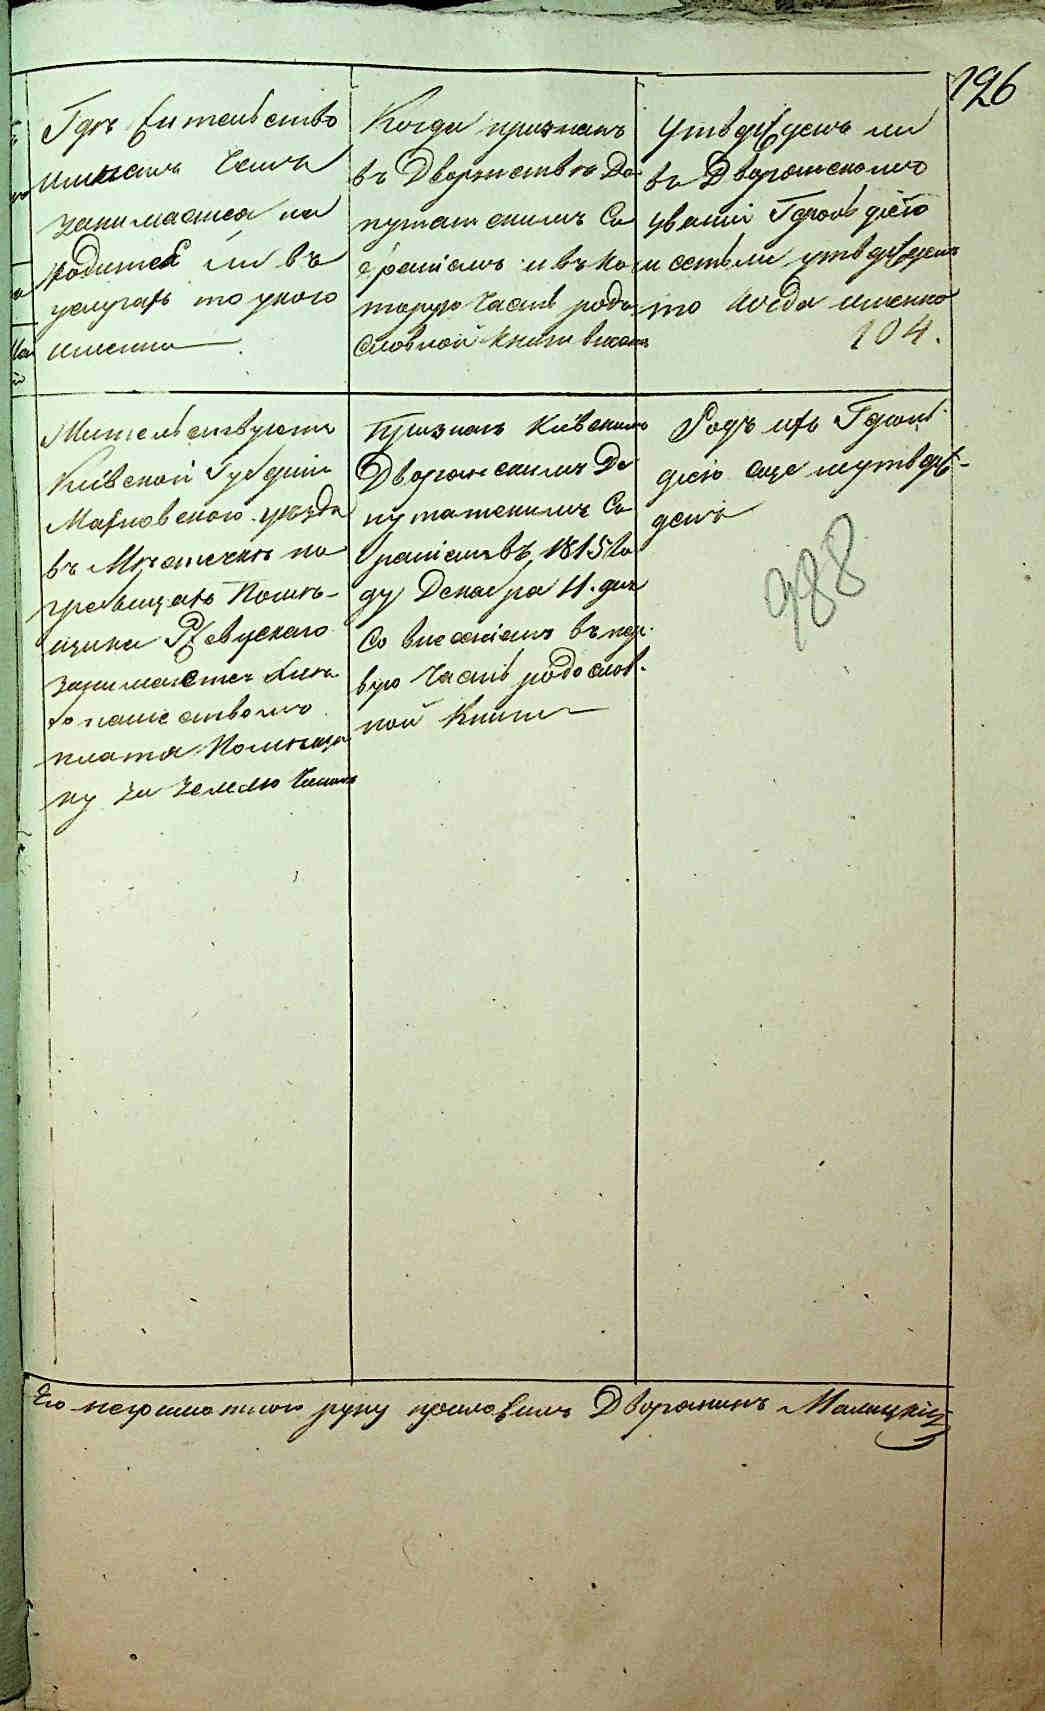 196
Гдѣ жительство
имѣетъ чемъ
занимается не
родился ли въ
услугахъ то у кого
именно
Когда признанъ
въ Дворянствѣ Де
путатскимъ Со
браніемъ и въ ко
торую часть родо
словной книги внесенъ
Утвержденъ ли
въ Дворянскомъ
званіи Герольдіею
и естьли утвержденъ
то когда именно
104.
Жительствуетъ
Кіевской Губерніи
Махновскаго уѣзда
въ Мѣстечкѣ По
гребищахъ Помѣ-
щика Ржевускаго
занимается хлѣ
бопашествомъ
платя Помѣщи
ку за землю чиншъ
Признанъ Кіевскимъ
Дворянскимъ Де
путатскимъ Со
браніемъ въ 1815 го
ду Декабря 11. дня
со внесеніемъ въ пер
вую часть родослов-
ной книги
Родъ ихъ Героль
діею еще неутверж-
денъ
988
Его неграмотнаго руку приложилъ Дворянинъ Малицкій